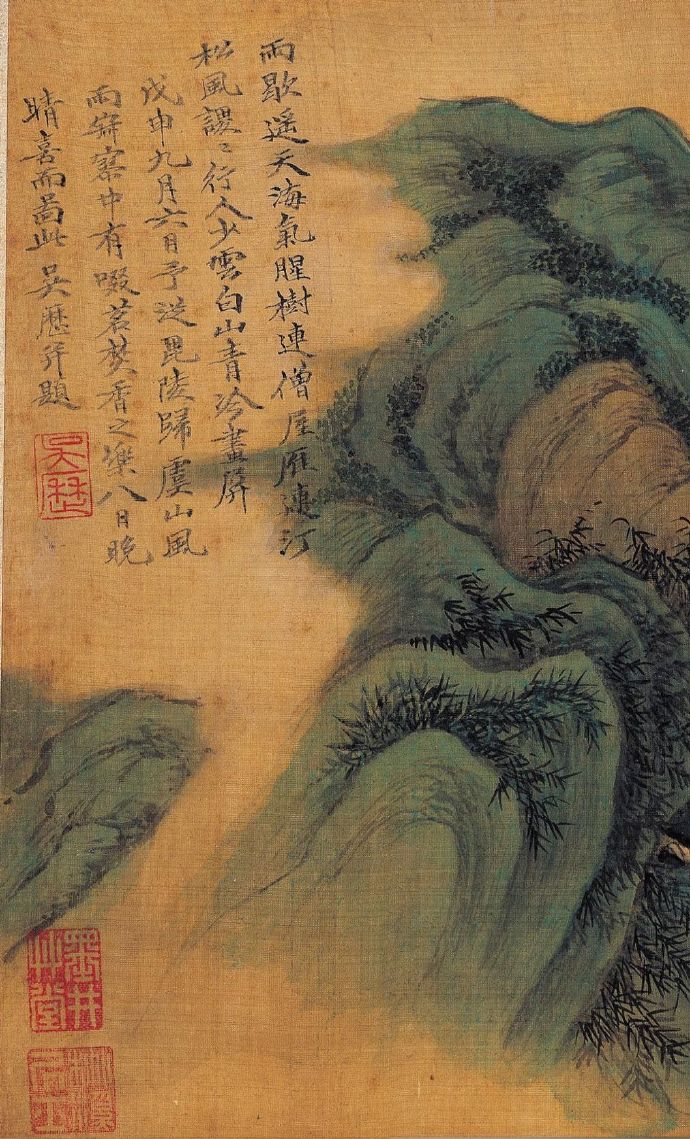 雨歇遥天海氣腥樹連僧屋雁連汀
松風謖〻行人少雲白山青冷畫屏
戊申九月六日予從毘陵歸虞山風
雨寂寥中有啜茗焚香之樂八日晚
晴喜而啚此吳歷并題
吳歷